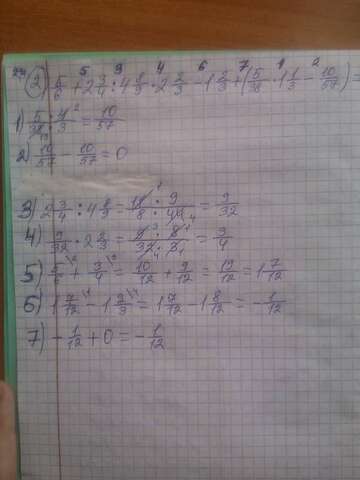 2) 5/6 + 2 3/4 : 4 8/9 · 2 2/3 - 1 2/3 + (5/38 · 1 1/3 - 10/57) =
1) 5/38 · 4/3 = 10/57
2) 10/57 - 10/57 = 0
3) 2 3/4 : 4 8/9 = 11/8 · 9/44 = 9/32
4) 9/32 · 2 2/3 = 9 · 8/32 · 3 = 3/4
5) 5/6 + 3/4 = 10/12 + 9/12 = 19/12 = 1 7/12
6) 1 7/12 - 1 2/3 = 1 7/12 - 1 8/12 = - 1/12
7) - 1/12 + 0 = - 1/12